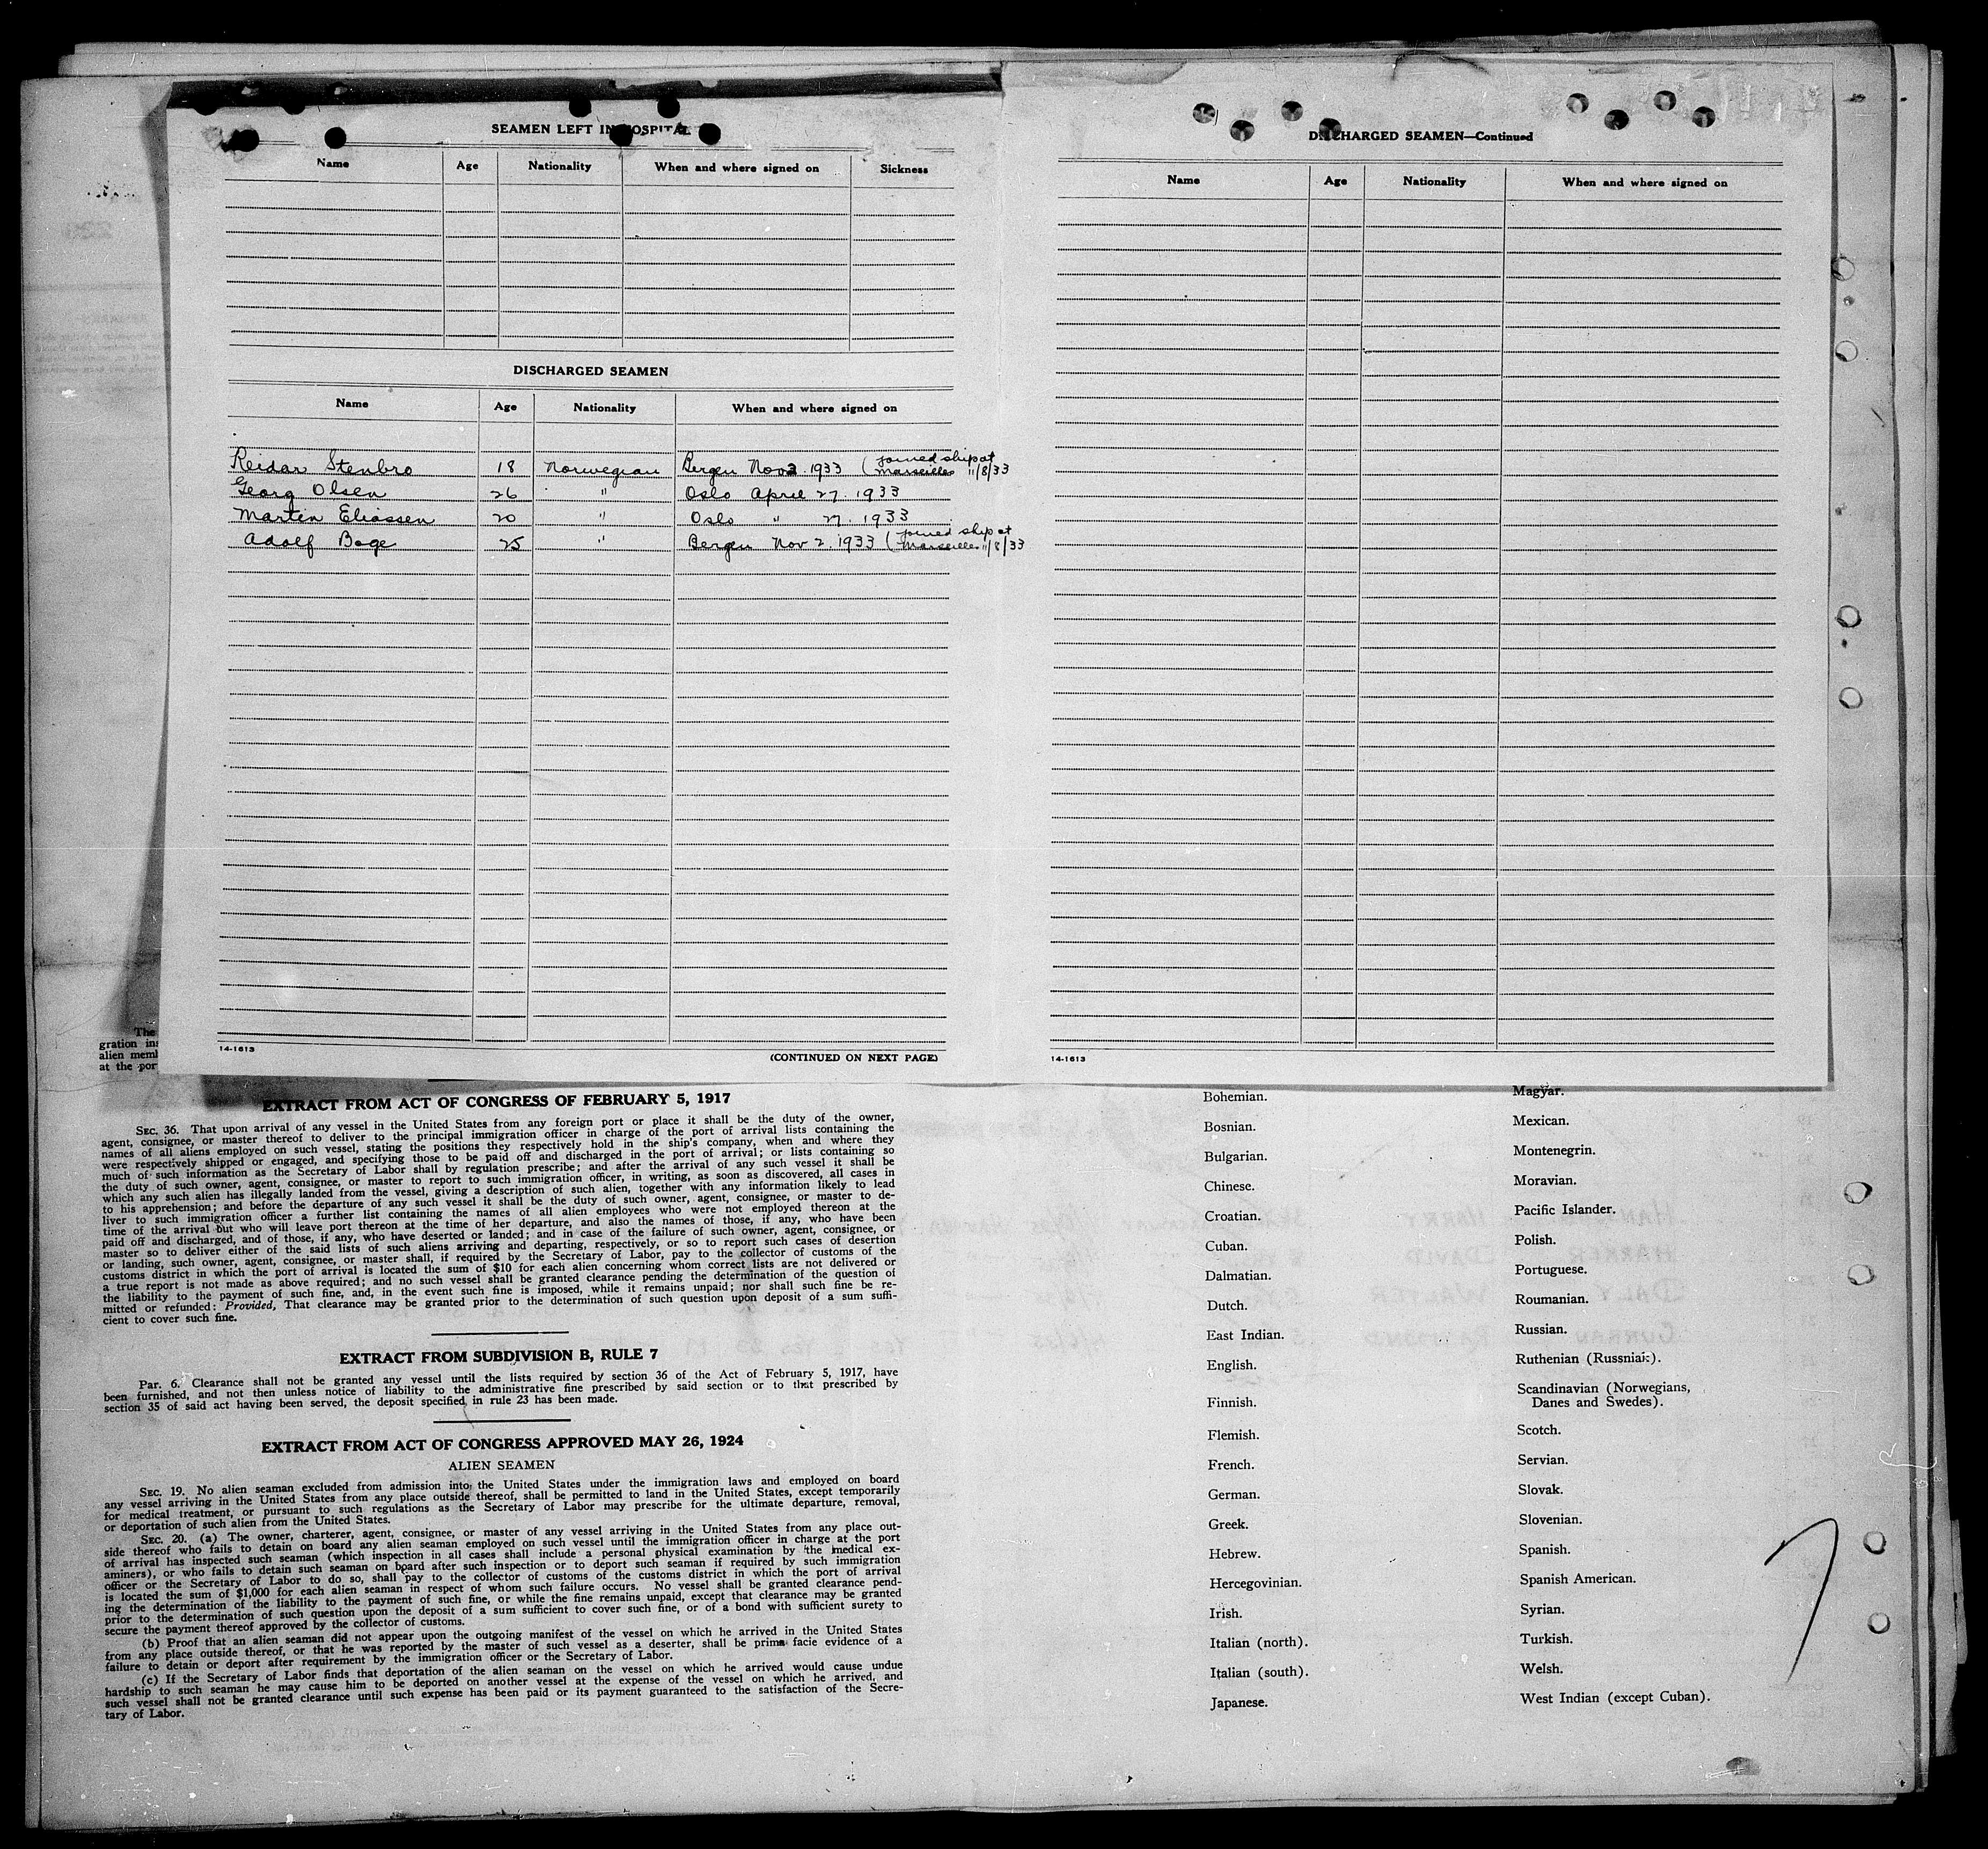 SEAMEN LEFT IN HOSPITAL
Name Age Nationality When and where signed on Sickness
DISCHARGED SEAMEN
Name Age Nationality When and where signed on
Reidar Stenbro 18 Norwegian Bergen Nov 2. 1933 (joined ship at Marseilles 11/8/33
Georg Olsen 26 " Oslo April 27. 1933
Martin Eliassen 20 " Oslo " 27. 1933
Adolf Boge 25 " Bergen Nov 2. 1933 (joined ship at Marseilles 11/8/33
14-1613
(CONTINUED ON NEXT PAGE)
DISCHARGED SEAMEN—Continued
Name Age Nationality When and where signed on
14-1613
The
gration ins
alien meml
at the por
EXTRACT FROM ACT OF CONGRESS OF FEBRUARY 5, 1917
SEC. 36. That upon arrival of any vessel in the United States from any foreign port or place it shall be the duty of the owner,
agent, consignee, or master thereof to deliver to the principal immigration officer in charge of the port of arrival lists containing the
names of all aliens employed on such vessel, stating the positions they respectively hold in the ship's company, when and where they
were respectively shipped or engaged, and specifying those to be paid off and discharged in the port of arrival; or lists containing so
much of such information as the Secretary of Labor shall by regulation prescribe; and after the arrival of any such vessel it shall be
the duty of such owner, agent, consignee, or master to report to such immigration officer, in writing, as soon as discovered, all cases in
which any such alien has illegally landed from the vessel, giving a description of such alien, together with any information likely to lead
to his apprehension; and before the departure of any such vessel it shall be the duty of such owner, agent, consignee, or master to de-
liver to such immigration officer a further list containing the names of all alien employees who were not employed thereon at the
time of the arrival but who will leave port thereon at the time of her departure, and also the names of those, if any, who have been
paid off and discharged, and of those, if any, who have deserted or landed; and in case of the failure of such owner, agent, consignee, or
master so to deliver either of the said lists of such aliens arriving and departing, respectively, or so to report such cases of desertion
or landing, such owner, agent, consignee, or master shall, if required by the Secretary of Labor, pay to the collector of customs of the
customs district in which the port of arrival is located the sum of $10 for each alien concerning whom correct lists are not delivered or
a true report is not made as above required; and no such vessel shall be granted clearance pending the determination of the question of
the liability to the payment of such fine, and, in the event such fine is imposed, while it remains unpaid; nor shall such fine be re-
mitted or refunded: Provided, That clearance may be granted prior to the determination of such question upon deposit of a sum suffi-
cient to cover such fine.
EXTRACT FROM SUBDIVISION B, RULE 7
Par. 6. Clearance shall not be granted any vessel until the lists required by section 36 of the Act of February 5, 1917, have
been furnished, and not then unless notice of liability to the administrative fine prescribed by said section or to that prescribed by
section 35 of said act having been served, the deposit specified in rule 23 has been made.
EXTRACT FROM ACT OF CONGRESS APPROVED MAY 26, 1924
ALIEN SEAMEN
SEC. 19. No alien seaman excluded from admission into the United States under the immigration laws and employed on board
any vessel arriving in the United States from any place outside thereof, shall be permitted to land in the United States, except temporarily
for medical treatment, or pursuant to such regulations as the Secretary of Labor may prescribe for the ultimate departure, removal,
or deportation of such alien from the United States.
SEC. 20. (a) The owner, charterer, agent, consignee, or master of any vessel arriving in the United States from any place out-
side thereof who fails to detain on board any alien seaman employed on such vessel until the immigration officer in charge at the port
of arrival has inspected such seaman (which inspection in all cases shall include a personal physical examination by the medical ex-
aminers), or who fails to detain such seaman on board after such inspection or to deport such seaman if required by such immigration
officer or the Secretary of Labor to do so, shall pay to the collector of customs of the customs district in which the port of arrival
is located the sum of $1,000 for each alien seaman in respect of whom such failure occurs. No vessel shall be granted clearance pend-
ing the determination of the liability to the payment of such fine, or while the fine remains unpaid, except that clearance may be granted
prior to the determination of such question upon the deposit of a sum sufficient to cover such fine, or of a bond with sufficient surety to
secure the payment thereof approved by the collector of customs.
(b) Proof that an alien seaman did not appear upon the outgoing manifest of the vessel on which he arrived in the United States
from any place outside thereof, or that he was reported by the master of such vessel as a deserter, shall be prima facie evidence of a
failure to detain or deport after requirement by the immigration officer or the Secretary of Labor.
(c) If the Secretary of Labor finds that deportation of the alien seaman on the vessel on which he arrived would cause undue
hardship to such seaman he may cause him to be deported on another vessel at the expense of the vessel on which he arrived, and
such vessel shall not be granted clearance until such expense has been paid or its payment guaranteed to the satisfaction of the Secre-
tary of Labor.
Bohemian.
Bosnian.
Bulgarian.
Chinese.
Croatian.
Cuban.
Dalmatian.
Dutch.
East Indian.
English.
Finnish.
Flemish.
French.
German.
Greek.
Hebrew.
Hercegovinian.
Irish.
Italian (north).
Italian (south).
Japanese.
Magyar.
Mexican.
Montenegrin.
Moravian.
Pacific Islander.
Polish.
Portuguese.
Roumanian.
Russian.
Ruthenian (Russniak).
Scandinavian (Norwegians,
Danes and Swedes).
Scotch.
Servian.
Slovak.
Slovenian.
Spanish.
Spanish American.
Syrian.
Turkish.
Welsh.
West Indian (except Cuban).